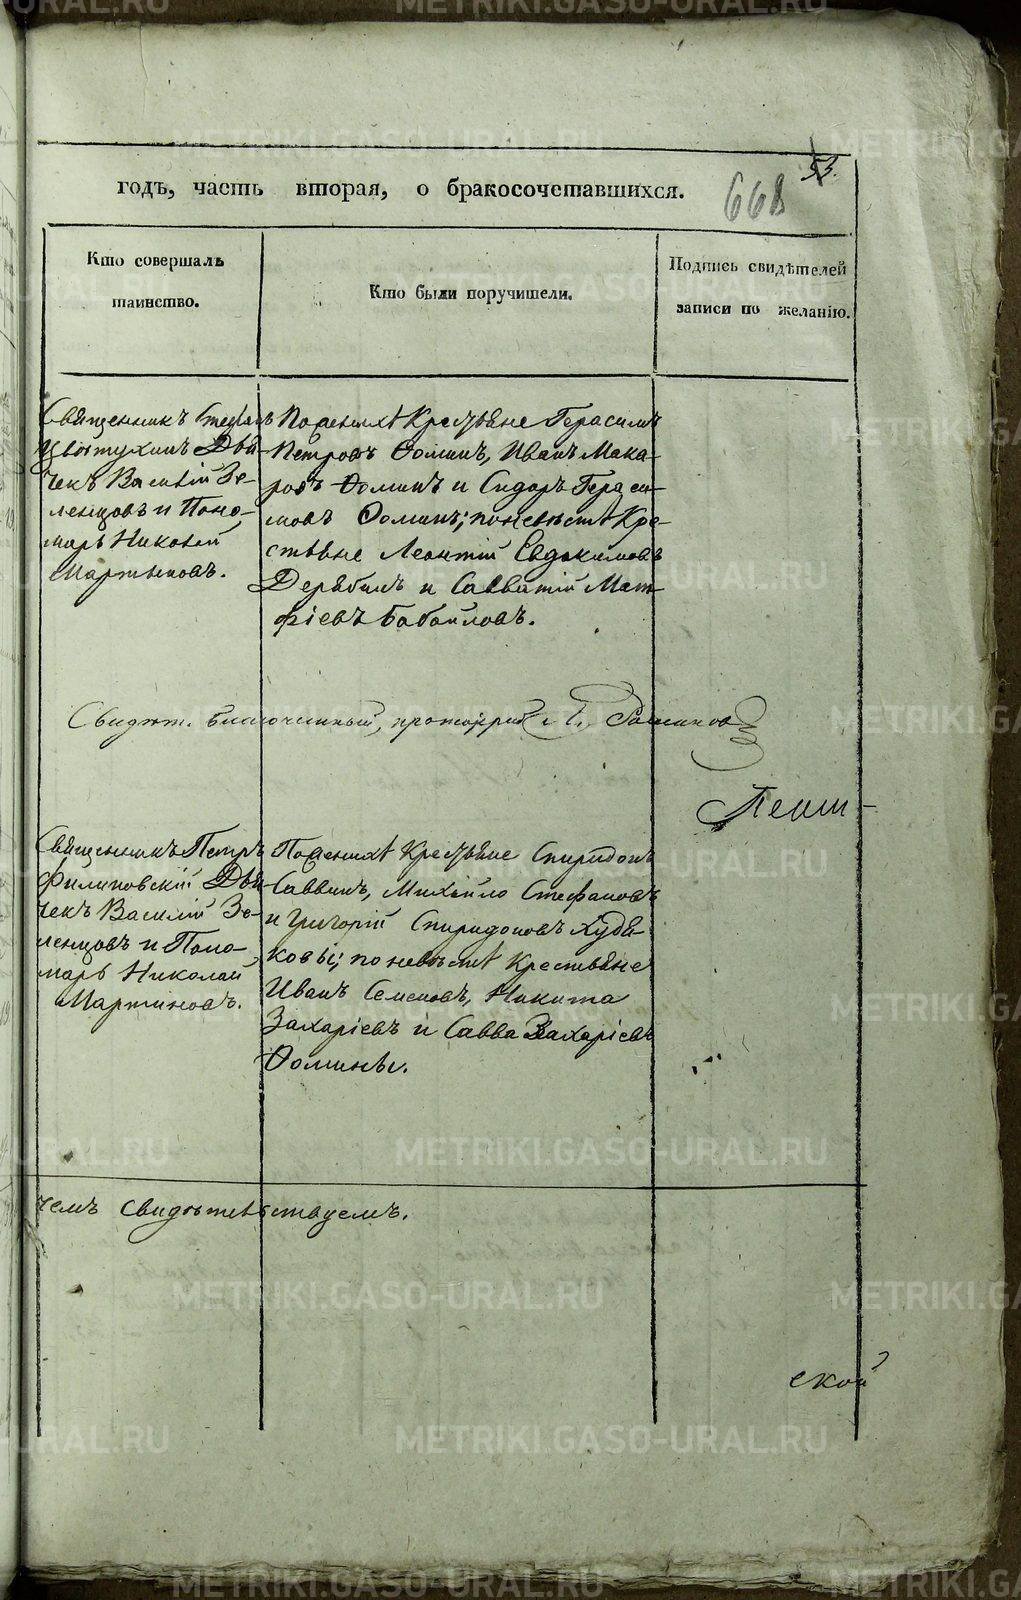 53.
годъ, часть вторая, о бракосочетавшихся.
668
Кто совершалъ таинство.
Кто были поручители.
Подпись свидѣтелей записи по желанію.
Священникъ Стефанъ
Цвѣтухинъ Дья-
чекъ Василій Зе-
ленцовъ и Поно-
марь Николай
Мартыновъ.
По женихѣ Крестьяне Герасимъ
Петровъ Ѳоминъ, Иванъ Мака-
ровъ Ѳоминъ и Сидоръ Гераси-
мовъ Ѳоминъ; по невѣстѣ Кре-
стьяне Леонтій Евдокимовъ
Дерябинъ и Савватій Мат-
фіевъ Бабайловъ.
Свидѣт. благочинный, протоіерей
Священникъ Петръ
Филиповскій Дья-
чекъ Василій Зе-
ленцовъ и Поно-
марь Николай
Мартиновъ.
По женихѣ Крестьяне Спиридонъ
Саввинъ, Михайло Стефановъ
и Григорій Спиридоновъ Худя-
ковы; по невѣстѣ Крестьяне
Иванъ Семеновъ, Никита
Захаріевъ и Савва Захаріевъ
Ѳомины.
чемъ свидѣтельствуемъ.
ской
METRIKI.GASO-URAL.RU